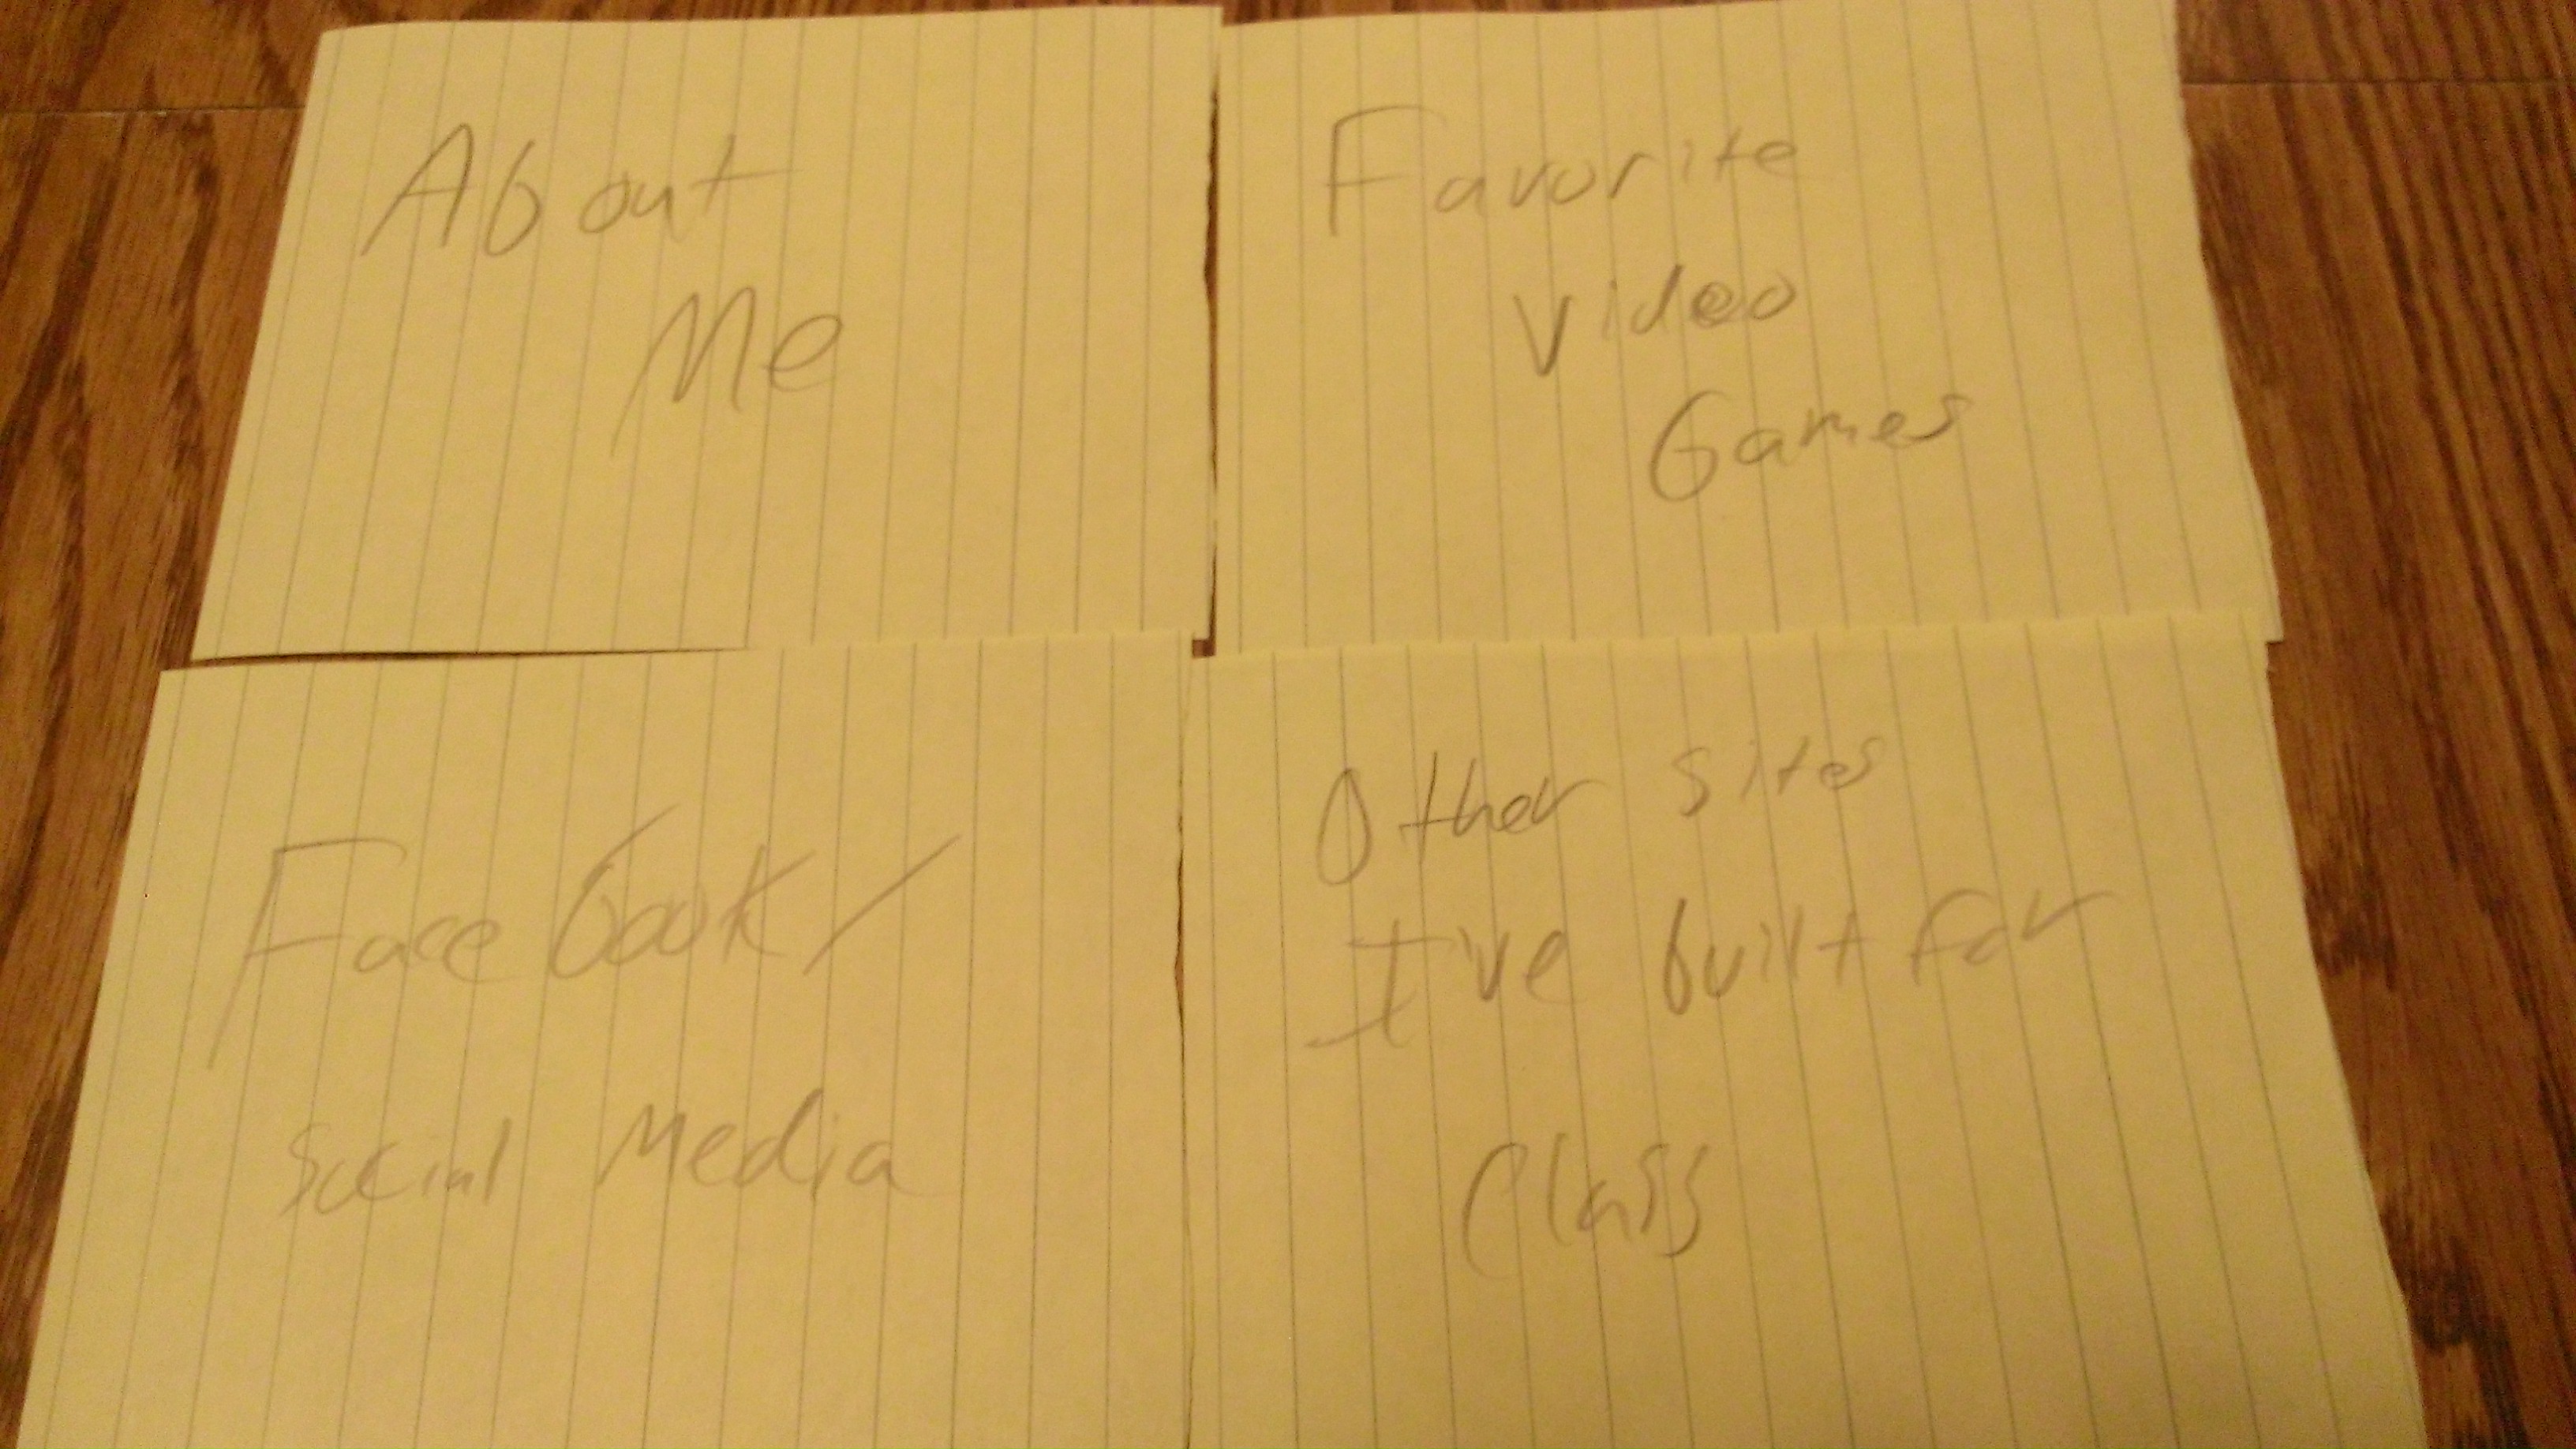 About
Me
Favorite
Video
Games
Facebook/
Social Media
Other sites
I've built for
Class